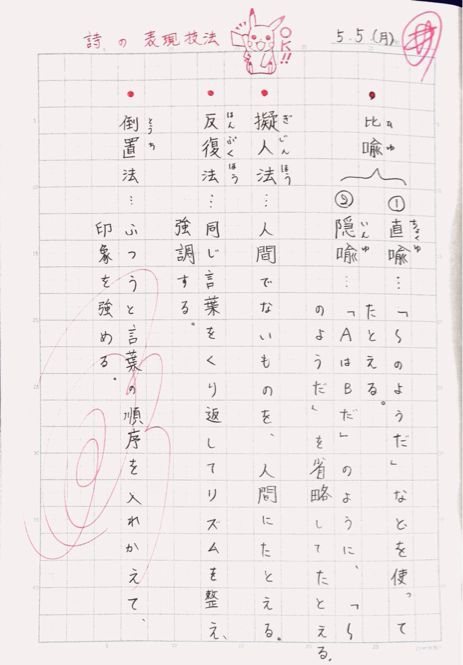 詩の表現技法
OK!!
5.5.(月)
比喩
ひゆ
①直喩…「〜のようだ」などを使って
ちょくゆ
たとえる。
②隠喩…「AはBだ」のように、「〜
いんゆ
のようだ」を省略してたとえる。
擬人法…人間でないものを、人間にたとえる。
ぎじんほう
反復法…同じ言葉をくり返してリズムを整え、
はんぷくほう
強調する。
倒置法…ふつうと言葉の順序を入れかえて、
とうち
印象を強める。